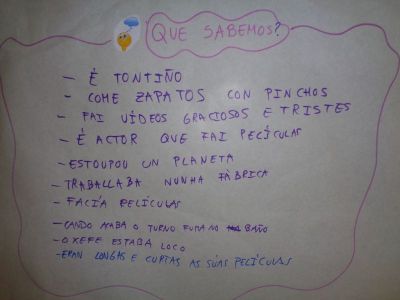 QUE SABEMOS?
- É TONTIÑO
- COME ZAPATOS CON PINCHOS
- FAI VÍDEOS GRACIOSOS E TRISTES
- É ACTOR QUE FAI PELÍCULAS
- ESTOUPOU UN PLANETA
- TRABALLABA NUNHA FÁBRICA
- FACÍA PELÍCULAS
- CANDO ACABA O TURNO FUMA NO BAÑO
- O XEFE ESTABA LOCO
- ERAN LONGAS E CURTAS AS SÚAS PELÍCULAS